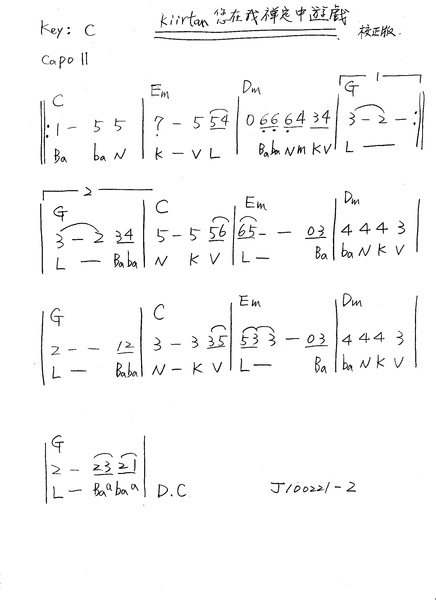 Key: C Kiirtan 您在我禪定中遊戲 校正版.
Capo 11
C Em Dm G 1
1 - 5 5 7 - 5 54 0 66 64 34 3 - 2 -
Ba ba N K - V L Baba Nm KV L —
2
G C Em Dm
3 - 2 34 5 - 5 56 65 - - 03 4 4 4 3
L — Baba N K V L — Ba ba N K V
G C Em Dm
2 - - 12 3 - 3 35 53 3 - 03 4 4 4 3
L — Baba N - K V L — Ba ba N K V
G
2 - 23 21
L - Baa baa D.C J100221-2